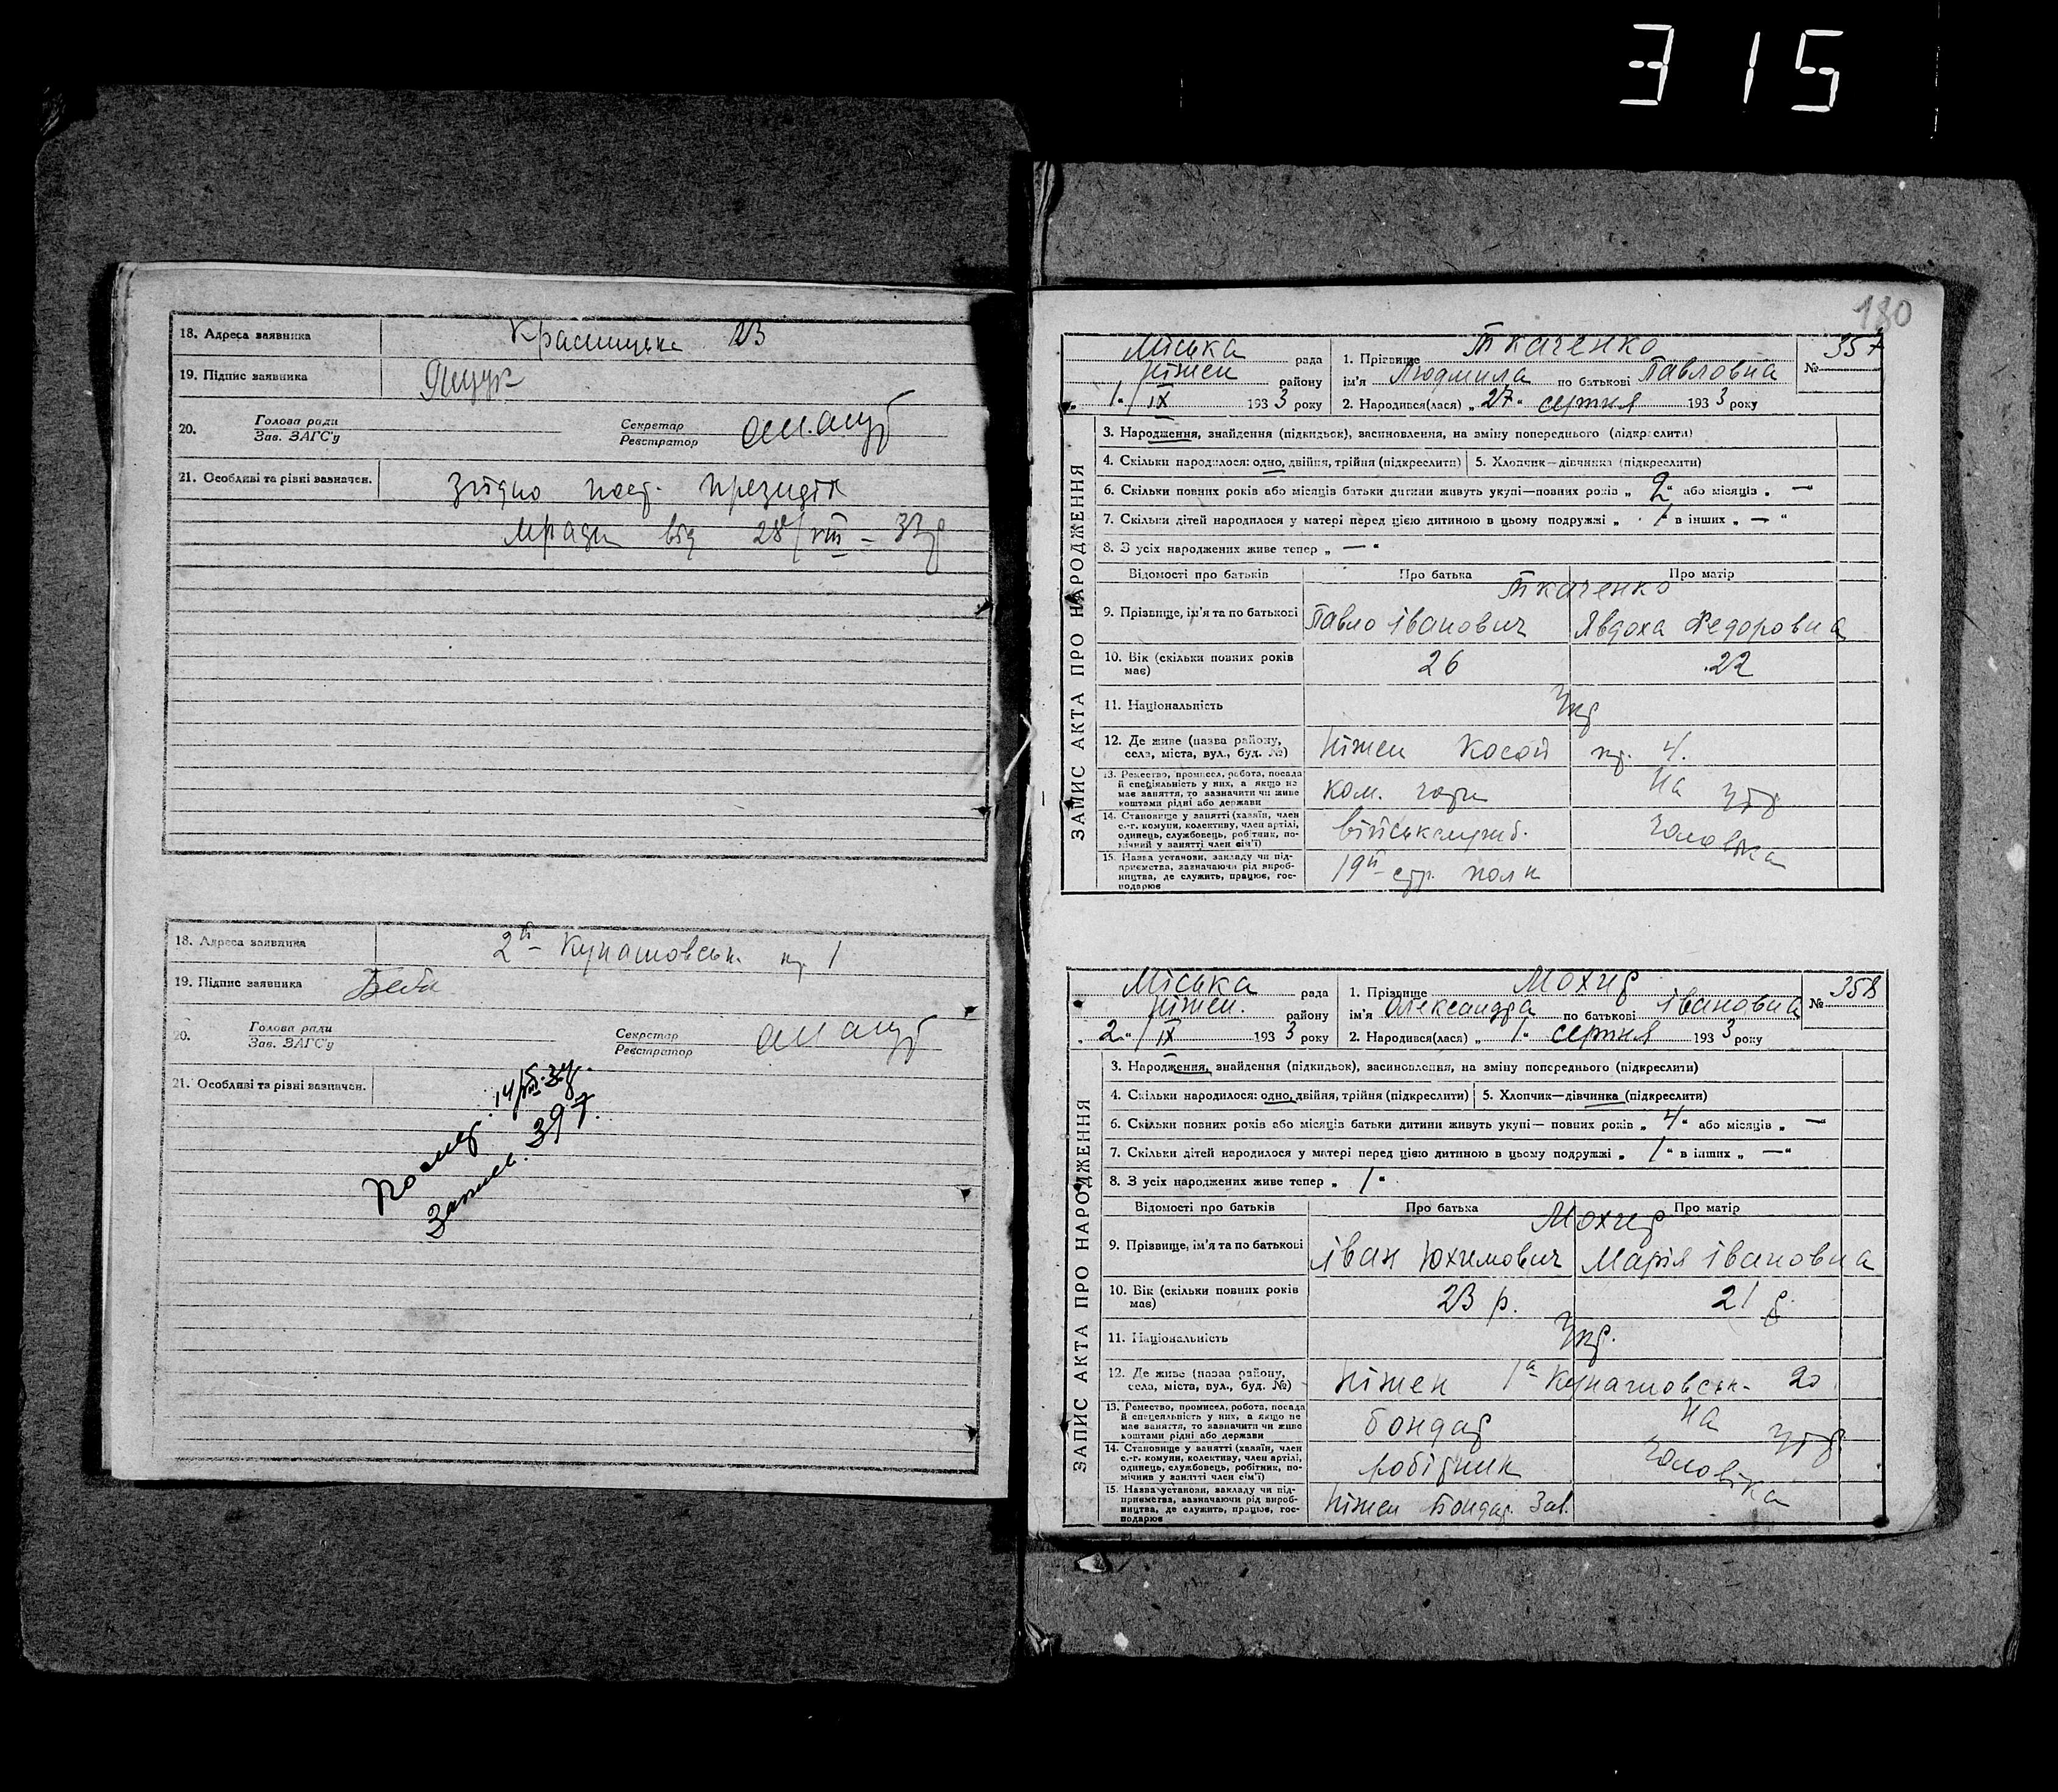 315
18. Адреса заявника 23
19. Підпис заявника Ящук
20. Голова ради
Зав. ЗАГС'у
Секретар
Реєстратор
21. Особливі та різні зазначен. Згідно пост. президії
мради від 28/VIII – 33р
18. Адреса заявника 2й Кунашовськ. пр. 1
19. Підпис заявника
20. Голова ради
Зав. ЗАГС'у
Секретар
Реєстратор
21. Особливі та різні зазначен.
Запис. 397.
180
ЗАПИС АКТА ПРО НАРОДЖЕННЯ
Міська рада
Ніжен району
„ 1 “ / IX 1933 року
1. Прізвище Ткаченко
ім'я Людмила по батькові Павловна
2. Народився(лася) „ 27 “ серпня 1933 року
№ 357
3. Народження, знайдення (підкидьок), засиновлення, на зміну попереднього (підкреслити)
4. Скільки народилося: одно, двійня, трійня (підкреслити)
5. Хлопчик—дівчинка (підкреслити)
6. Скільки повних років або місяців батьки дитини живуть укупі—повних років „ 2 “ або місяців „ —
7. Скільки дітей народилося у матері перед цією дитиною в цьому подружжі „ 1 “ в інших „ — “
8. З усіх народжених живе тепер „ — “
Відомості про батьків Про батька Про матір
Ткаченко
9. Прізвище, ім'я та по батькові Павло Іванович Явдоха Федоровна
10. Вік (скільки повних років має) 26 22
11. Національність Укр
12. Де живе (назва району, села, міста, вул., буд. №) Ніжен Косой пр. 4.
13. Ремество, промисел, робота, посада й спеціяльність у них, а якщо не має заняття, то зазначити чи живе коштами рідні або держави ком. На утр
14. Становище у занятті (хазяїн, член с.-г. комуни, колективу, член артілі, одинець, службовець, робітник, помічний у занятті член сім'ї) військслужб. чоловіка
15. Назва установи, закладу чи підприємства, зазначаючи рід виробництва, де служить, працює, господарює 19й стр. полк
ЗАПИС АКТА ПРО НАРОДЖЕННЯ
Міська рада
Ніжен. району
„ 2 “ / IX 1933 року
1. Прізвище Мохир
ім'я Олександра по батькові Івановна
2. Народився(лася) „ 1 “ серпня 1933 року
№ 358
3. Народження, знайдення (підкидьок), засиновлення, на зміну попереднього (підкреслити)
4. Скільки народилося: одно, двійня, трійня (підкреслити)
5. Хлопчик—дівчинка (підкреслити)
6. Скільки повних років або місяців батьки дитини живуть укупі— повних років „ 4 “ або місяців „ —
7. Скільки дітей народилося у матері перед цією дитиною в цьому подружжі „ 1 “ в інших „ — “
8. З усіх народжених живе тепер „ 1 “
Відомості про батьків Про батька Про матір
Мохир
9. Прізвище, ім'я та по батькові Іван Юхимович Марія Івановна
10. Вік (скільки повних років має) 23 р. 21 р.
11. Національність Укр.
12. Де живе (назва району, села, міста, вул., буд. №) Ніжен 1а Кунашовськ. 20
13. Ремество, промисел, робота, посада й спеціяльність у них, а якщо не має заняття, то зазначити чи живе коштами рідні або держави бондар На утр
14. Становище у занятті (хазяїн, член с.-г. комуни, колективу, член артілі, одинець, службовець, робітник, помічний у занятті член сім'ї) робітник чоловіка
15. Назва установи, закладу чи підприємства, зазначаючи рід виробництва, де служить, працює, господарює Ніжен Бондар. Зав.